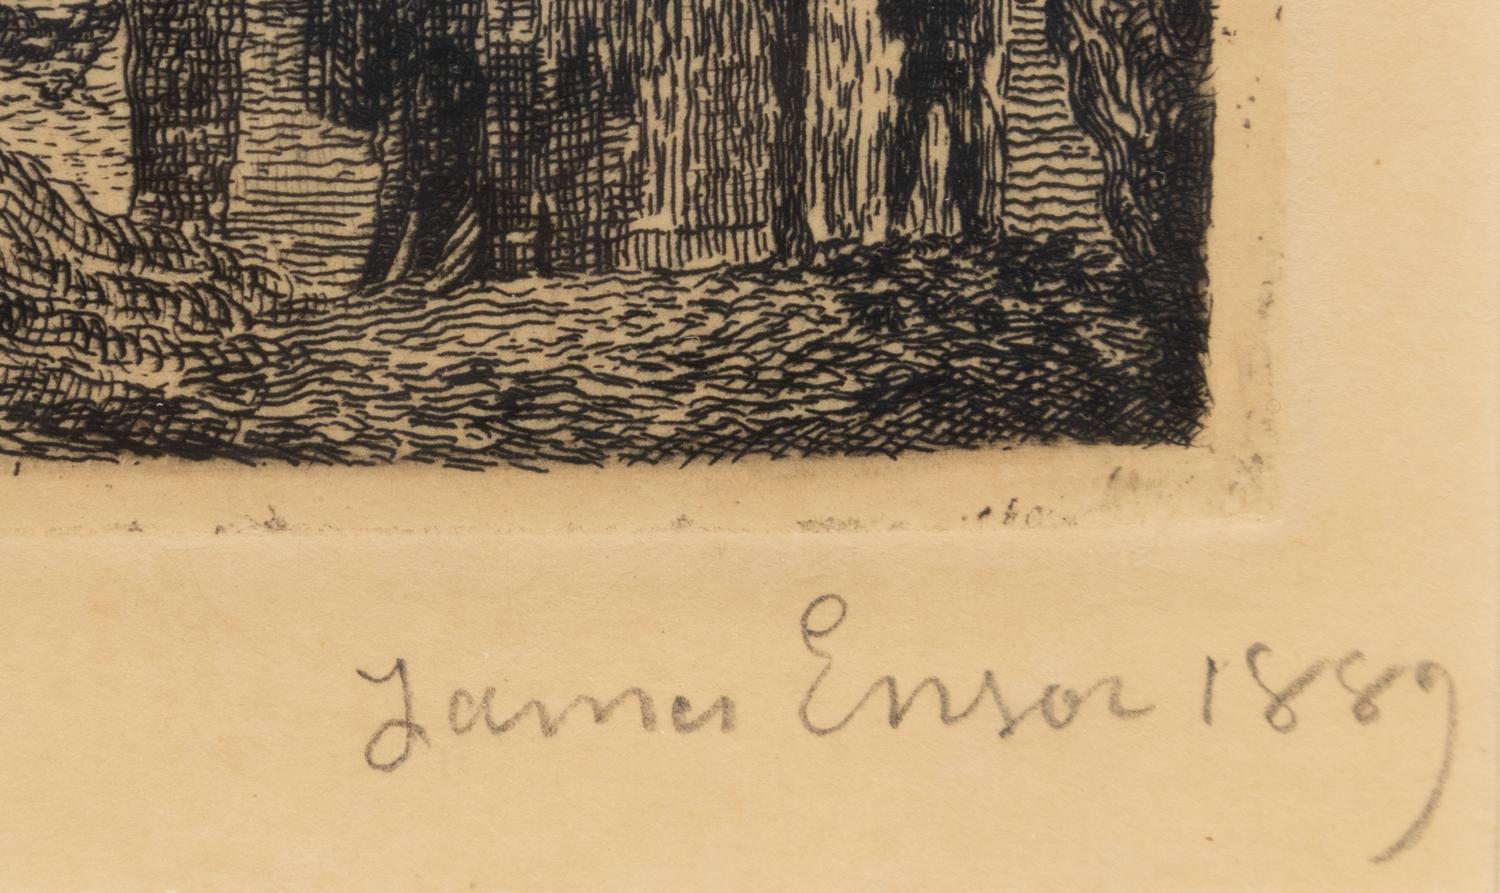 James Ensor 1889